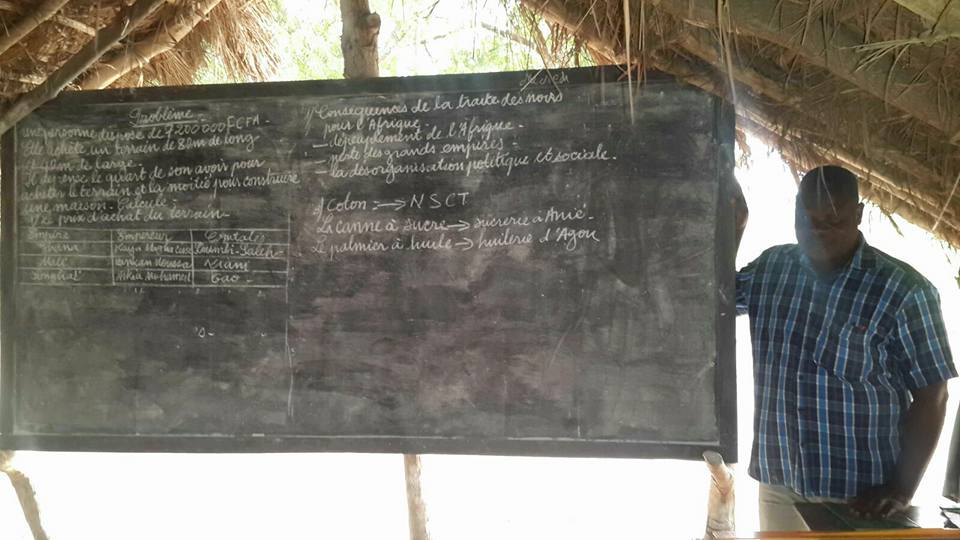 Problème
Une personne dispose de 7200000F CFA.
Elle achète un terrain de 80m de long
et 60m de large.
Il dépense le quart de son avoir pour
acheter le terrain et la moitié pour construire
une maison. Calcule:
1/ Le prix d'achat du terrain
Empire Empereur Capitales
Ghana Kaya Magha Cissé Koumbi-Saleh
Mali Kankan Moussa Niani
Songhaï Askia Mohamed Gao
1/ Conséquences de la traite des noirs
pour l'Afrique.
- dépeuplement de l'Afrique.
- perte des grands empires.
- la désorganisation politique et sociale.
2/ Coton: → NSCT
La canne à sucre → sucrerie à Anié.
Le palmier à huile → huilerie d'Agou